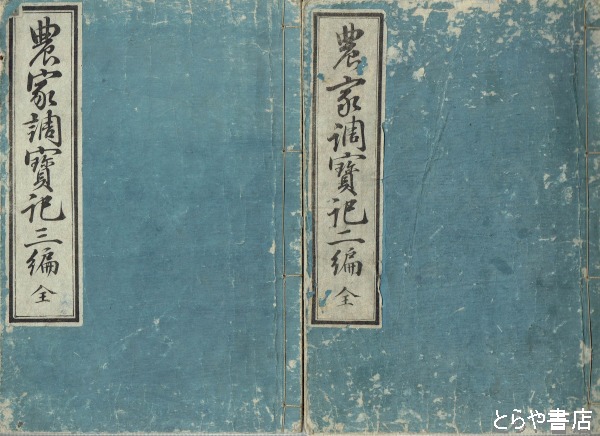 農家調寳記二編 全
農家調寳記三編 全
とらや書店